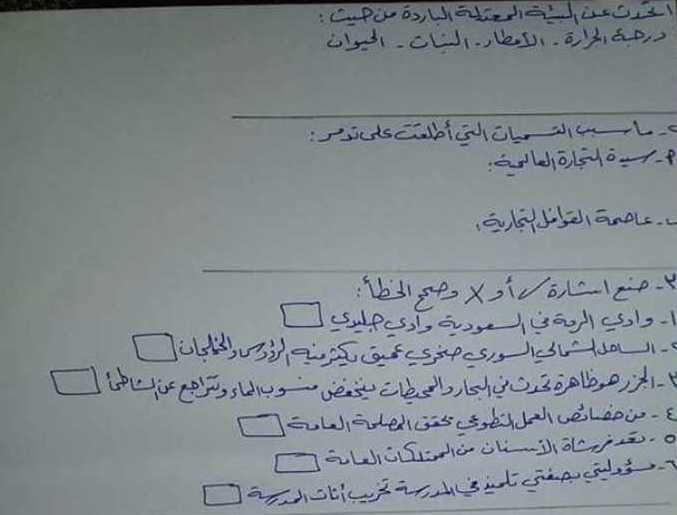 تحدث عن البيئة المعتدلة الباردة من حيث :
درجة الحرارة - الأمطار - النبات - الحيوان
٢- ما سبب التسميات التي أطلقت على تدمر :
٩- سيدة التجارة العالمية :
ب- عاصمة القوافل التجارية :
٣- ضع اشارة ✓ أو X وصحح الخطأ :
١- وادي الرمة في السعودية وادي جليدي
٢- الساحل الشمالي السوري صخري عميق يكثر فيه الرؤوس والخلجان
٣- الجزر هو ظاهرة تحدث في البحار والمحيطات ينخفض منسوب الماء وتتراجع عن الشاطئ
٤- من خصائص العمل التطوعي تحقق المصلحة العامة
٥- تعد فرشاة الأسنان من الممتلكات العامة
٦- مسؤوليتي بصفتي تلميذ في المدرسة تخريب أثاث المدرسة